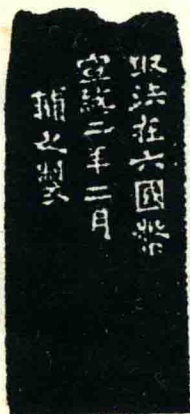 取法在六國幣
宣統二年二月
輔之製